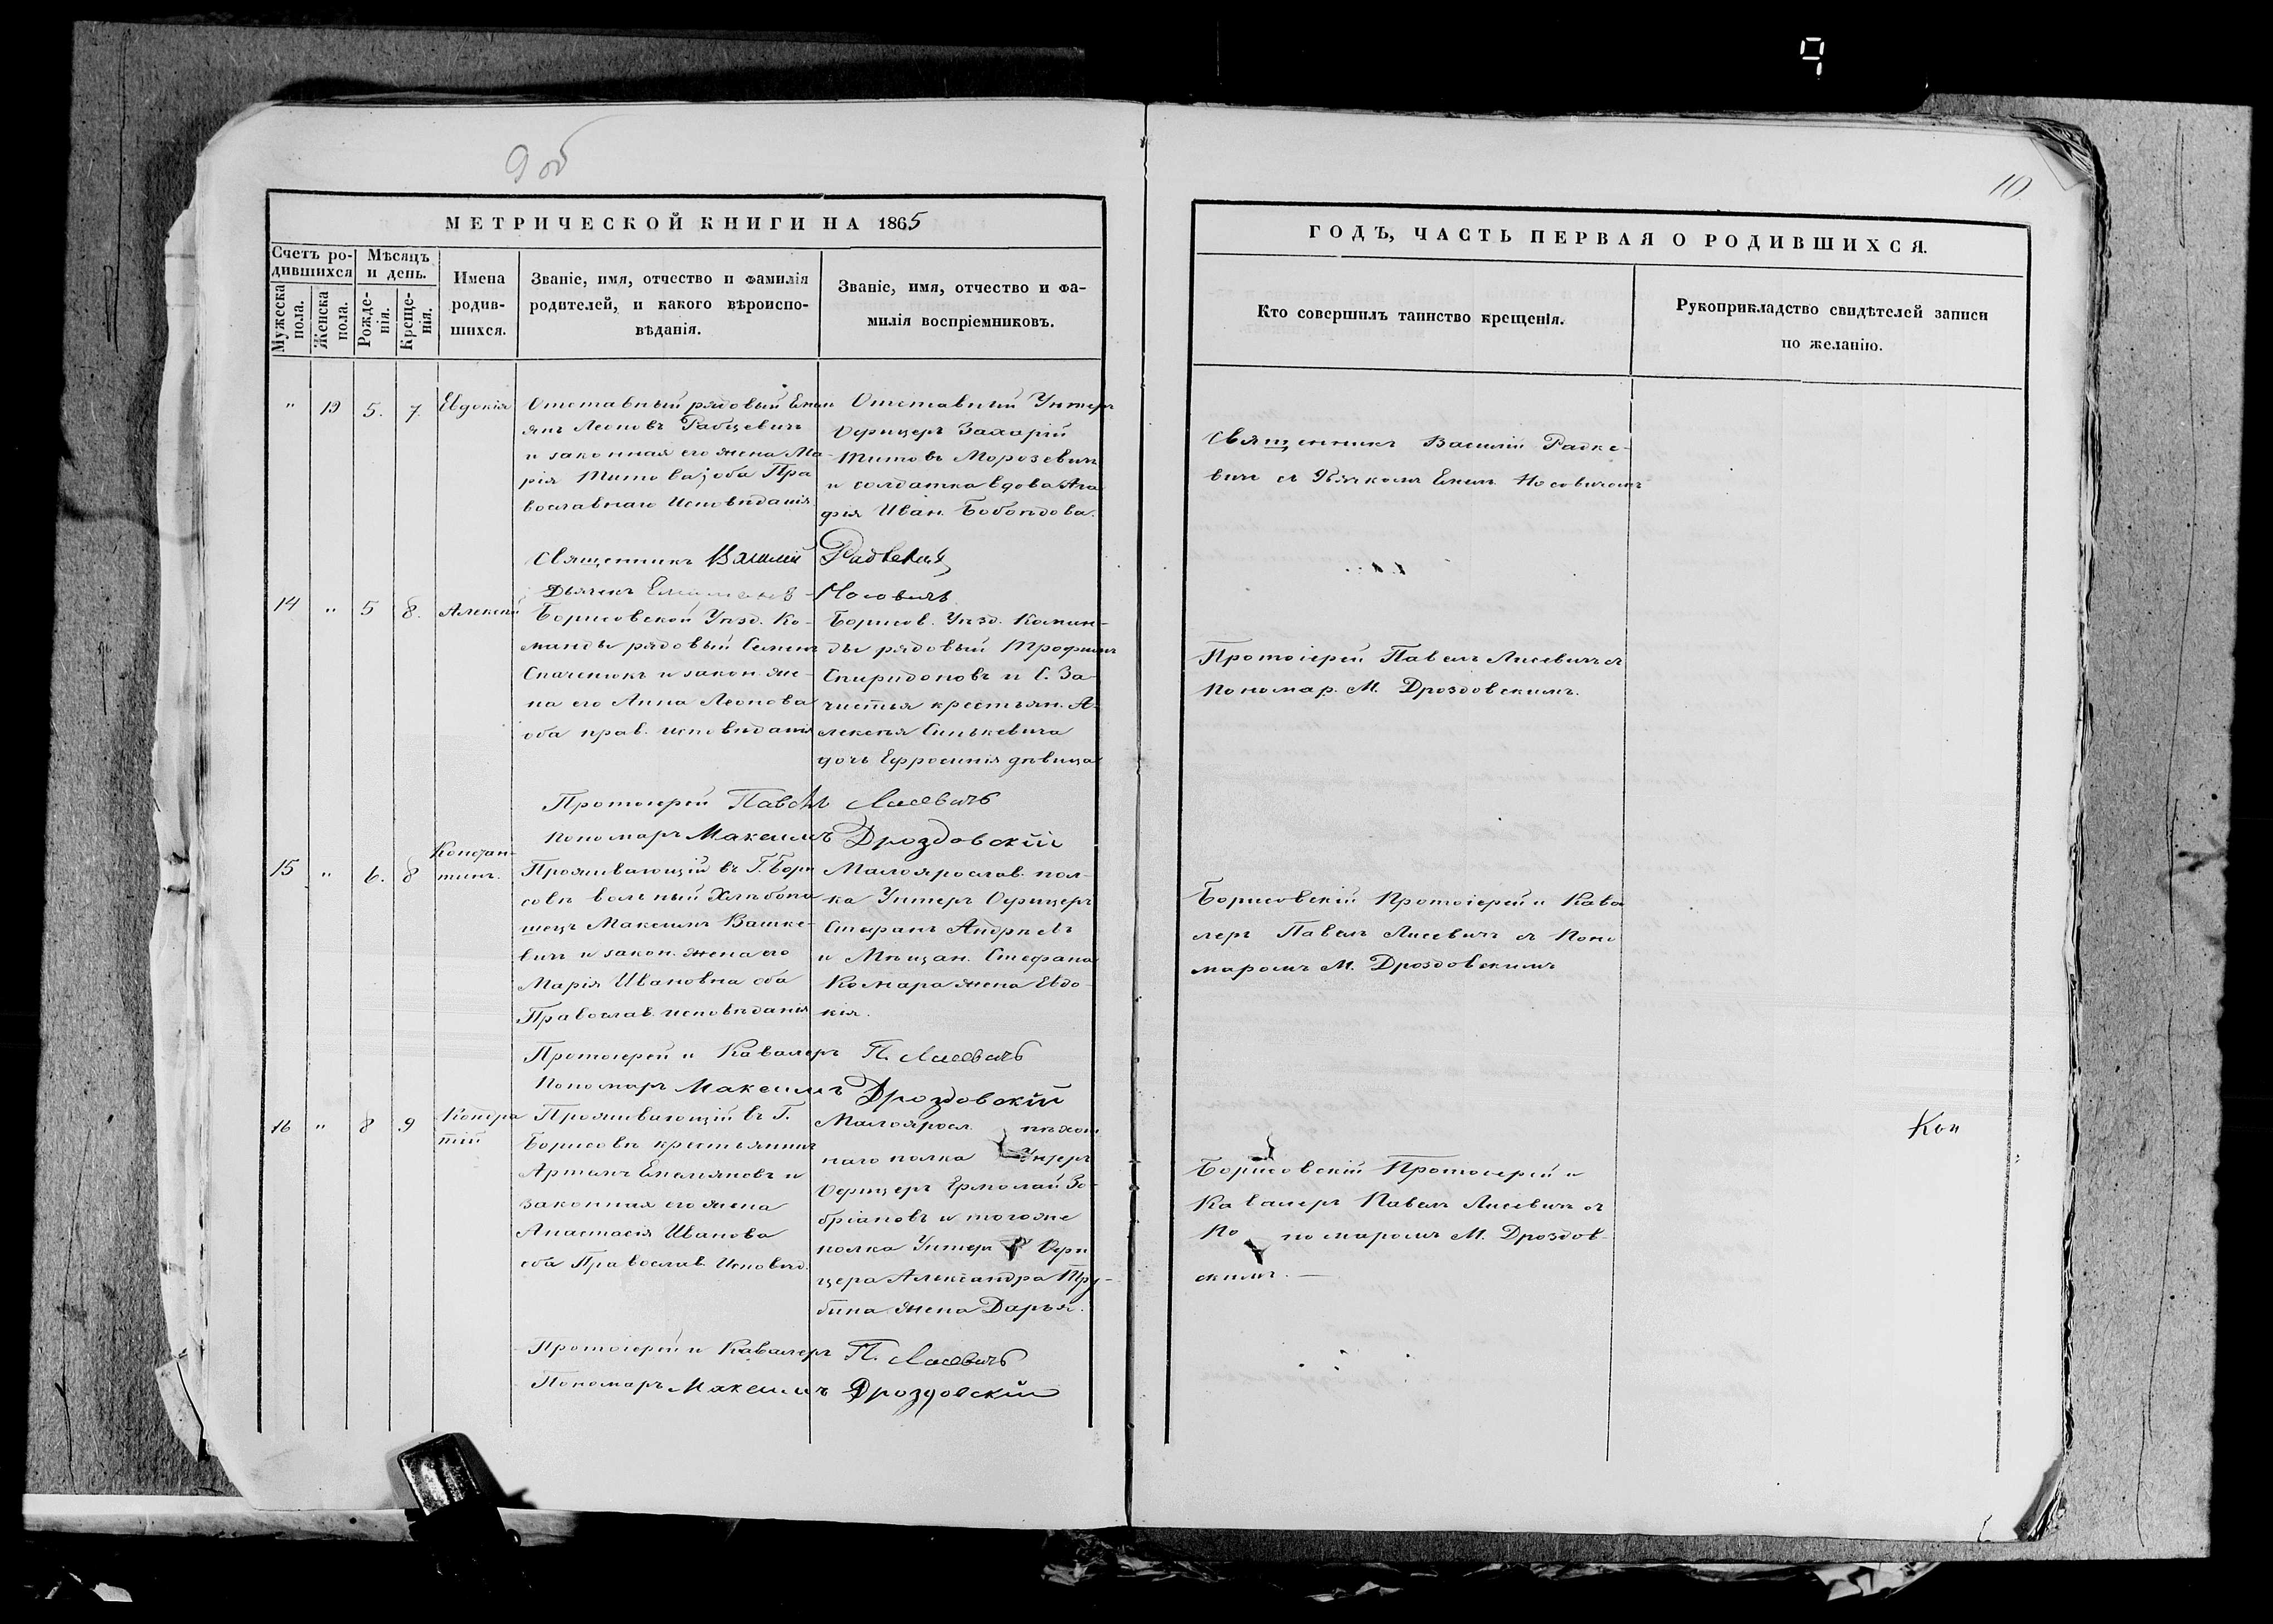 9
9 об
10
МЕТРИЧЕСКОЙ КНИГИ НА 1865
Счетъ ро-
дившихся
Мужеска
пола.
Женска
пола.
Мѣсяцъ
и день.
Рожде-
нія.
Креще-
нія.
Имена
родив-
шихся.
Званіе, имя, отчество и фамилія
родителей, и какого вѣроиспо-
вѣданія.
Званіе, имя, отчество и фа-
милія воспріемниковъ.
" 19 5. 7. Евдокія
Отставный рядовый Емел
янъ Леоновъ Рабцевичъ
и законная его жена Ма-
рія Титова, оба Пра
вославнаго Исповѣданія
Отставный Унтеръ
Офицеръ Захарій
Титовъ Морозевичъ
и солдатка вдова Ага
фія Иван.
Священникъ Василій Радкевичъ
Дьячекъ Носовичъ
14 " 5 8. Алексѣй
Борисовской Уѣзд. Ко-
манды рядовый Семенъ
и закон. же-
на его Анна Леонова
оба прав. исповѣданія
Борисов. Уѣзд. Коман-
ды рядовый Трофимъ
Спиридоновъ и С. За-
чистья крестьян. А-
лексѣя Синькевича
дочь Ефросинія дѣвица
Протоіерей Павелъ Лисевичъ
Пономарь Максимъ Дроздовскій
15 " 6. 8 Констан-
тинъ.
Проживающій въ Г. Бори
совѣ вольный Хлѣбопа
шецъ Максимъ Вашке-
вичъ и закон. жена его
Марія Ивановна оба
Православ. исповѣданія
Малоярослав. пол-
ка Унтеръ Офицеръ
Андреевъ
и Мѣщан. Стефана
Комара жена Евдо-
кія.
Протоіерей и Кавалеръ П. Лисевичъ
Пономарь Максимъ Дроздовскій
16 " 8 9 Кондра
тій
Проживающій въ Г.
Борисовѣ крестьянинъ
Артамъ Емельяновъ и
законная его жена
Анастасія Иванова
оба Православ. Исповѣд.
Малояросл. пѣхот
наго полка Унтеръ
Офицеръ Ермолай Зо-
бріановъ и тогоже
полка Унтеръ Офи
цера Александра Тру-
бина жена Дарья.
Протоіерей и Кавалеръ П. Лисевичъ
Пономарь Максимъ Дроздовскій
ГОДЪ, ЧАСТЬ ПЕРВАЯ О РОДИВШИХСЯ.
Кто совершилъ таинство крещенія.
Рукоприкладство свидѣтелей записи
по желанію.
Священникъ Василій Радке-
вичъ съ Дьячкомъ Емел. Носовичемъ
Протоіерей Павелъ Лисевичъ съ
Пономар. М. Дроздовскимъ.
Борисовскій Протоіерей и Кава
леръ Павелъ Лисевичъ съ Поно
маромъ М. Дроздовскимъ
Борисовскій Протоіерей и
Кавалеръ Павелъ Лисевичъ съ
По номаромъ М. Дроздов-
скимъ. —
Кон